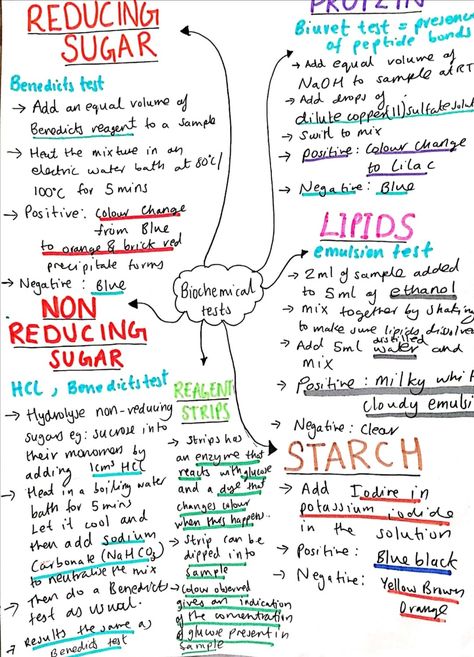 REDUCING
SUGAR
Benedicts test
→ Add an equal volume of
Benedicts reagent to a sample
→ Heat the mixture in an
electric water bath at 80°C/
100°C for 5 mins
→ Positive: Colour Change
from Blue
to orange & brick red
precipitate forms
→ Negative: Blue
NON
REDUCING
SUGAR
HCL, Benedicts test
→ Hydrolyse non-reducing
sugars eg: sucrose into
their monomers by
adding 1cm³ HCl
→ Heat in a boiling water
bath for 5 mins
Let it cool and
then add sodium
Carbonate (NaHCO3)
to neutralise the mix
→ Then do a Benedicts
test as usual.
→ Results the same as
Benedicts test
Biochemical
tests
REAGENT
STRIPS
→ Strips has
an enzyme that
reacts with glucose
and a dye that
changes colour
when this happens..
→ Strip can be
dipped into
Sample
→ Colour observed
gives an indication
of the concentration
of glucose present in
Sample
PROTEIN
Biuret test = presence
of peptide bonds
→ Add equal volume of
NaOH to sample at RT
→ Add drops of
dilute copper(II) sulfate solut
→ Swirl to mix
→ Positive: Colour change
to Lilac
→ Negative: Blue
LIPIDS
emulsion test
→ 2ml of sample added
to 5ml of ethanol
→ mix together by shaking
to make sure lipids dissolve
→ Add 5ml distilled water and
mix
→ Positive: milky whit
cloudy emulsi
→ Negative: Clear
STARCH
→ Add Iodine in
potassium iodide
in the solution
→ Positive: Blue black
→ Negative: Yellow Brown
Orange